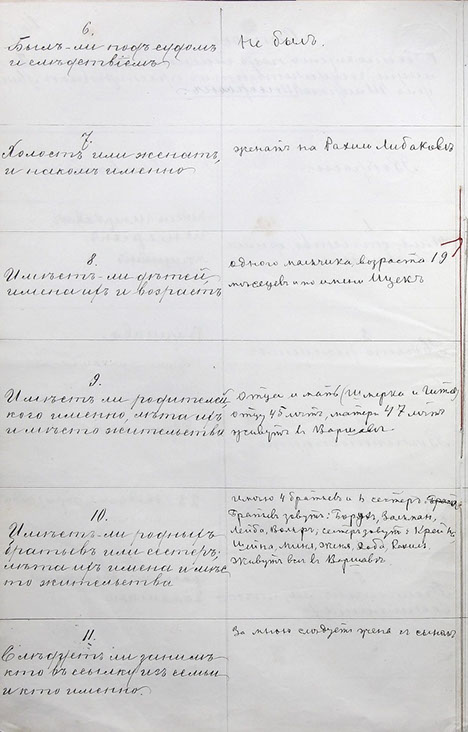 6.
Былъ-ли подъ судомъ
и слѣдствіемъ
Не былъ.
7.
Холостъ или женатъ,
и на комъ именно
женатъ на Рахили Либаковъ
8.
Имѣетъ-ли дѣтей
имена ихъ и возрастъ
одного мальчика возраста 19
мѣсяцевъ и по имени Ицекъ
9.
Имѣетъ ли родителей
кого именно, лѣта ихъ
и мѣсто жительства
Отца и мать (Шмерка и Гитла)
отцу 45 лѣтъ, матери 47 лѣтъ
живутъ въ Варшавѣ.
10.
Имѣетъ ли родныхъ
братьевъ или сестеръ,
лѣта ихъ имена и мѣс
то жительства
имѣю 4 братьевъ и сестеръ.
Братьевъ зовутъ: Залманъ,
Лейба, сестеръ зовутъ:
Живутъ все въ Варшавѣ
11.
Слѣдуетъ ли за нимъ
кто въ ссылку изъ семьи
и кто именно.
За мною слѣдуетъ жена съ сыномъ